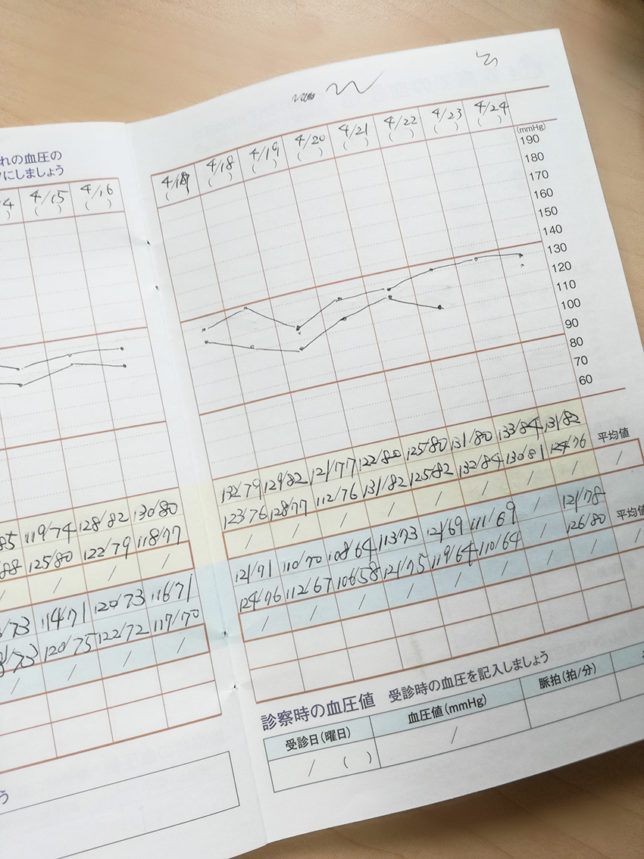 れの血圧の
にしましょう
4 4/15 4/16
) ( ) ( )
85 119/74 128/82 130/80
88 125/80 122/79 118/77
/ / / /
/73 114/71 120/73 116/71
/73 120/75 122/72 117/70
/ / / /
う
4/18 4/19 4/20 4/21 4/22 4/23 4/24
( ) ( ) ( ) ( ) ( ) ( ) ( ) ( )
(mmHg)
190
180
170
160
150
140
130
120
110
100
90
80
70
60
132/79 129/82 121/77 122/80 125/80 131/80 133/84 131/82
123/76 128/77 112/76 131/82 125/82 132/84 130/81 124/76
平均値
/ / / / / / / / /
121/71 110/70 108/64 113/73 121/69 111/69 / 121/78
124/76 112/67 106/58 121/75 119/64 110/64 / 126/80
平均値
/ / / / / / / / /
診察時の血圧値 受診時の血圧を記入しましょう
受診日(曜日) 血圧値(mmHg) 脈拍(拍/分)
/ ( ) /